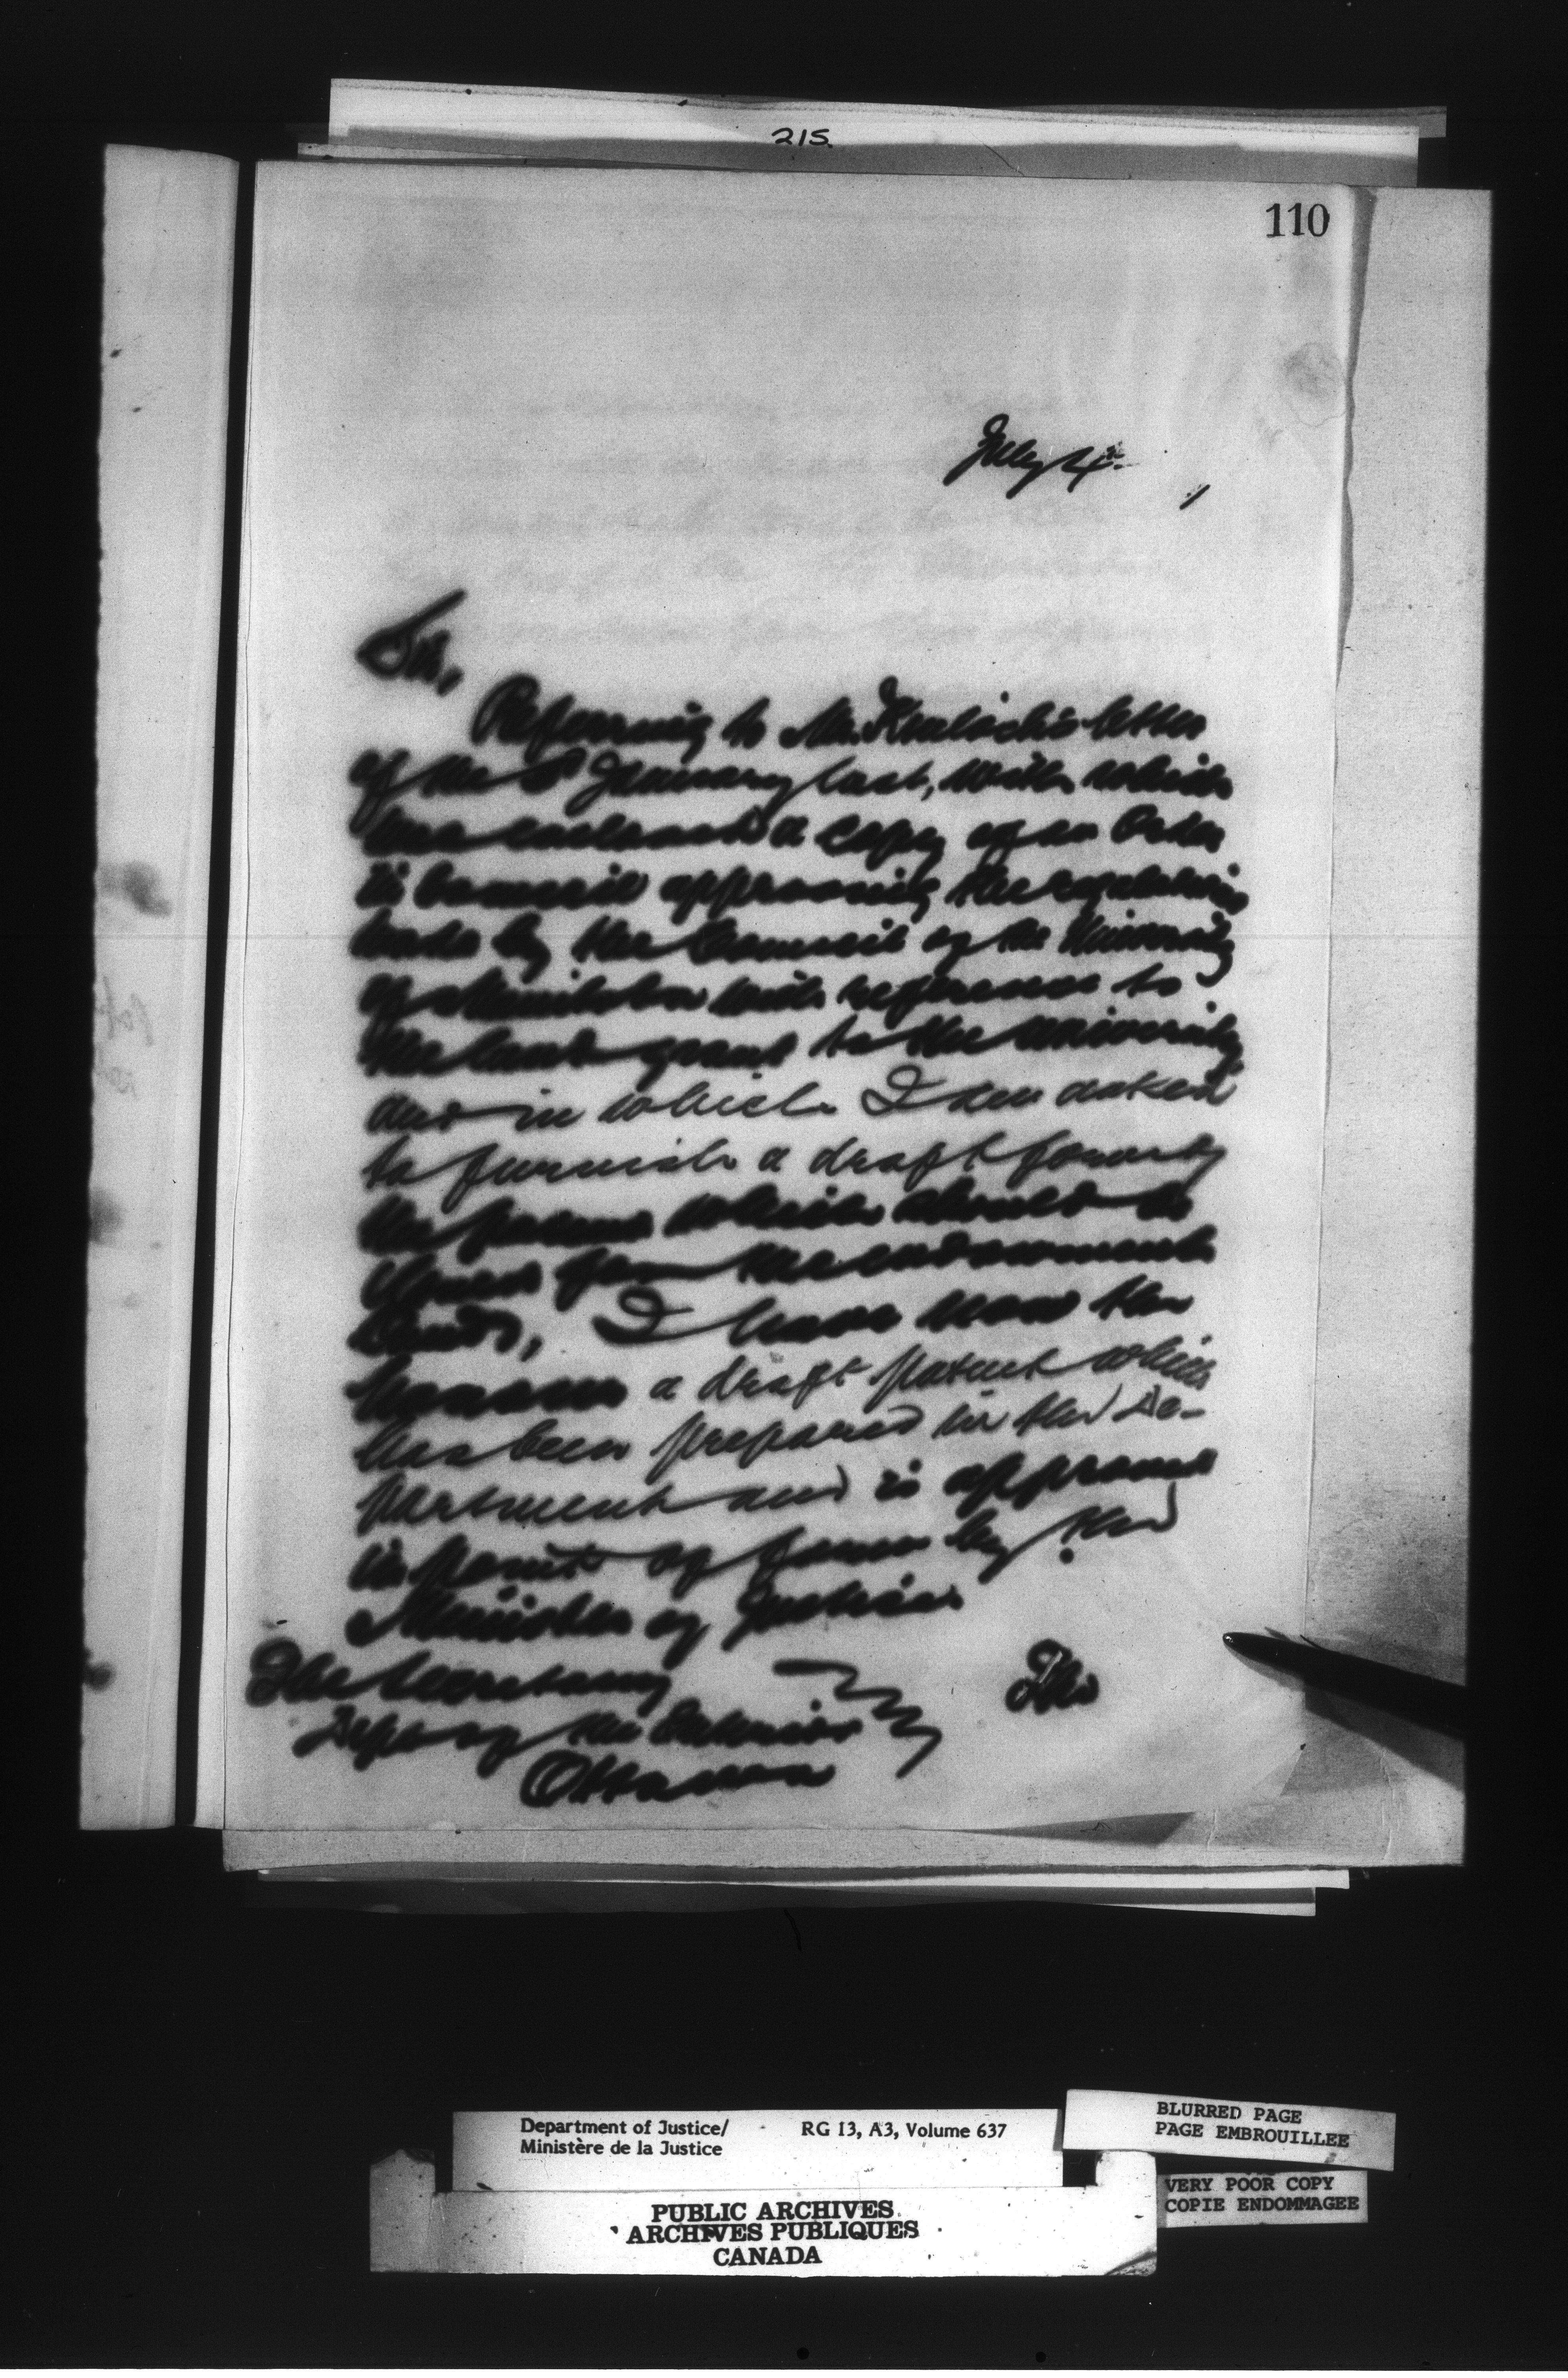 215.
110
July 4th
Sir,
Referring to Mr. letter
of the January last, with which
was enclosed a copy of an Order
in Council approving the regulations
made by the Council of the University
of Manitoba with reference to
the land grant to the University
and in which I am asked
to furnish a draft form of
the patent which should be
issued for the endowment
lands, I have now the
honour a draft patent which
has been prepared in the De-
partment and is approved
in point of form by the
Minister of Justice
The Secretary
Dept of the Interior
Ottawa
The
Department of Justice/ RG 13, A3, Volume 637
Ministère de la Justice
BLURRED PAGE
PAGE EMBROUILLEE
VERY POOR COPY
COPIE ENDOMMAGEE
PUBLIC ARCHIVES
ARCHIVES PUBLIQUES
CANADA